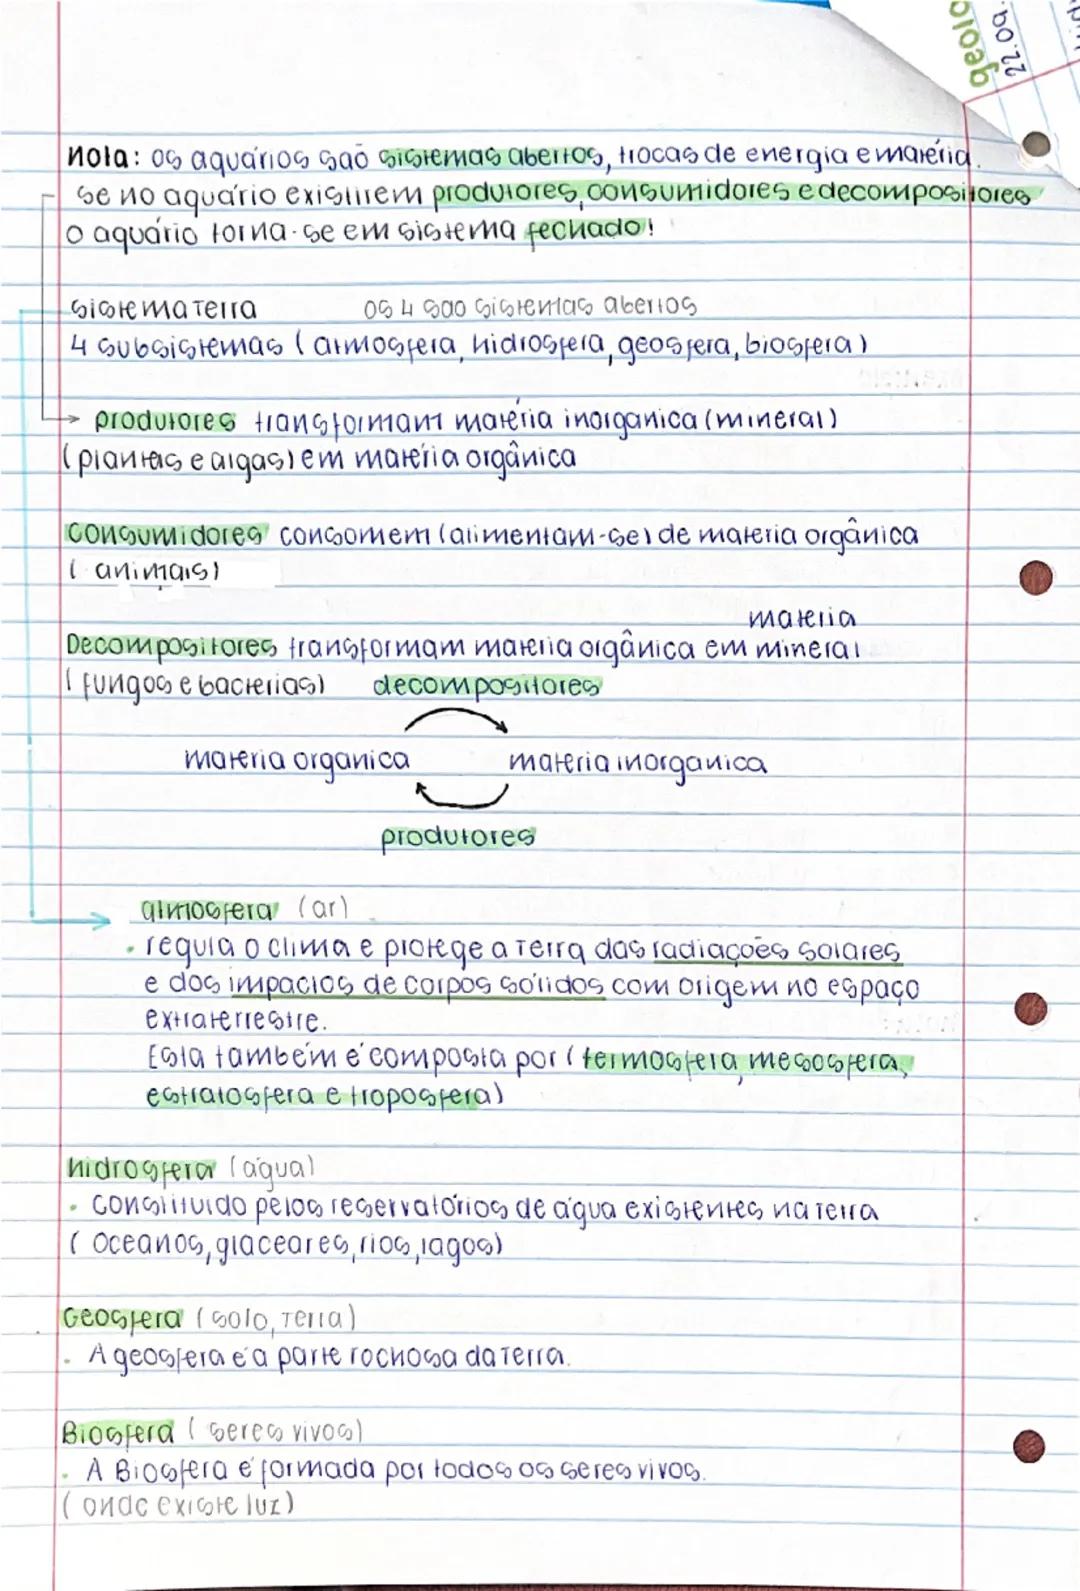 geolo
22.09.
Nota: os aquários são sistemas abertos, trocas de energia e matéria.
se no aquário existirem produtores, consumidores e decompositores
o aquário torna-se em sistema fechado!
sistema Terra os 4 sao sistemas abertos
4 subsistemas (atmosfera, hidrosfera, geosfera, biosfera)
produtores transformam matéria inorganica (mineral)
(plantas e algas) em matéria orgânica
Consumidores consomem (alimentam-se) de materia orgânica
(animais)
materia
Decompositores transformam materia orgânica em mineral
(fungos e bacterias) decompositores
materia organica materia inorganica
produtores
atmosfera (ar)
• regula o clima e protege a Terra das radiações solares
e dos impactos de corpos sólidos com origem no espaço
extraterrestre.
Esta também é composta por (termosfera, mesosfera,
estratosfera e troposfera)
hidrosfera (água)
• Constituido pelos reservatórios de água existentes na terra
(Oceanos, glaceares, rios, lagos)
Geosfera (solo, Terra)
• A geosfera é a parte rochosa da Terra.
Biosfera (seres vivos)
• A Biosfera é formada por todos os seres vivos.
(onde existe luz)